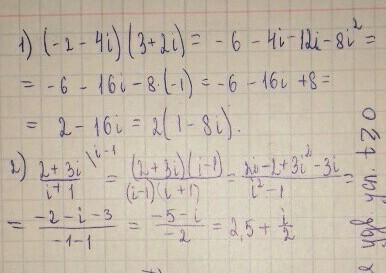 1) (-2 - 4i) (3 + 2i) = -6 - 4i - 12i - 8i² =
= -6 - 16i - 8·(-1) = -6 - 16i + 8 =
= 2 - 16i = 2(1 - 8i).
2) \frac{2+3i}{i+1}^{\i-1} = \frac{(2+3i)(i-1)}{(i-1)(i+1)} = \frac{2i-2+3i²-3i}{i²-1} =
= \frac{-2-i-3}{-1-1} = \frac{-5-i}{-2} = 2,5 + \frac{i}{2}